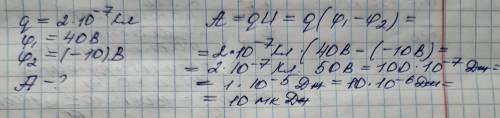 q = 2·10⁻⁷ Кл
φ₁ = 40В
φ₂ = (-10)В
A - ?
A = qU = q(φ₁-φ₂) =
= 2·10⁻⁷Кл·(40В-(-10В)=
= 2·10⁻⁷Кл. 50В = 100·10⁻⁷Дж=
= 1·10⁻⁵Дж = 10·10⁻⁶Дж=
= 10 мкДж